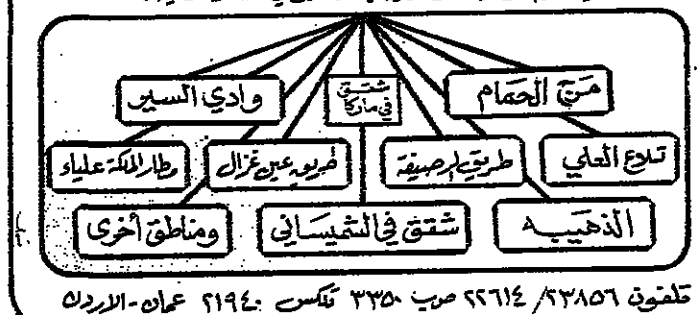 مرج الحمام
شقق في ماركا
وادي السير
تلاع العلي
طريق الرصيفة
طريق عين غزال
مطار الملكة علياء
الذهيبه
شقق في الشميساني
ومناطق أخرى
تلفون ٢٣٨٥٦/ ٢٢٦١٤ ص.ب ٣٣٥٠ تلكس ٢١٩٤٠ عمان - الاردن